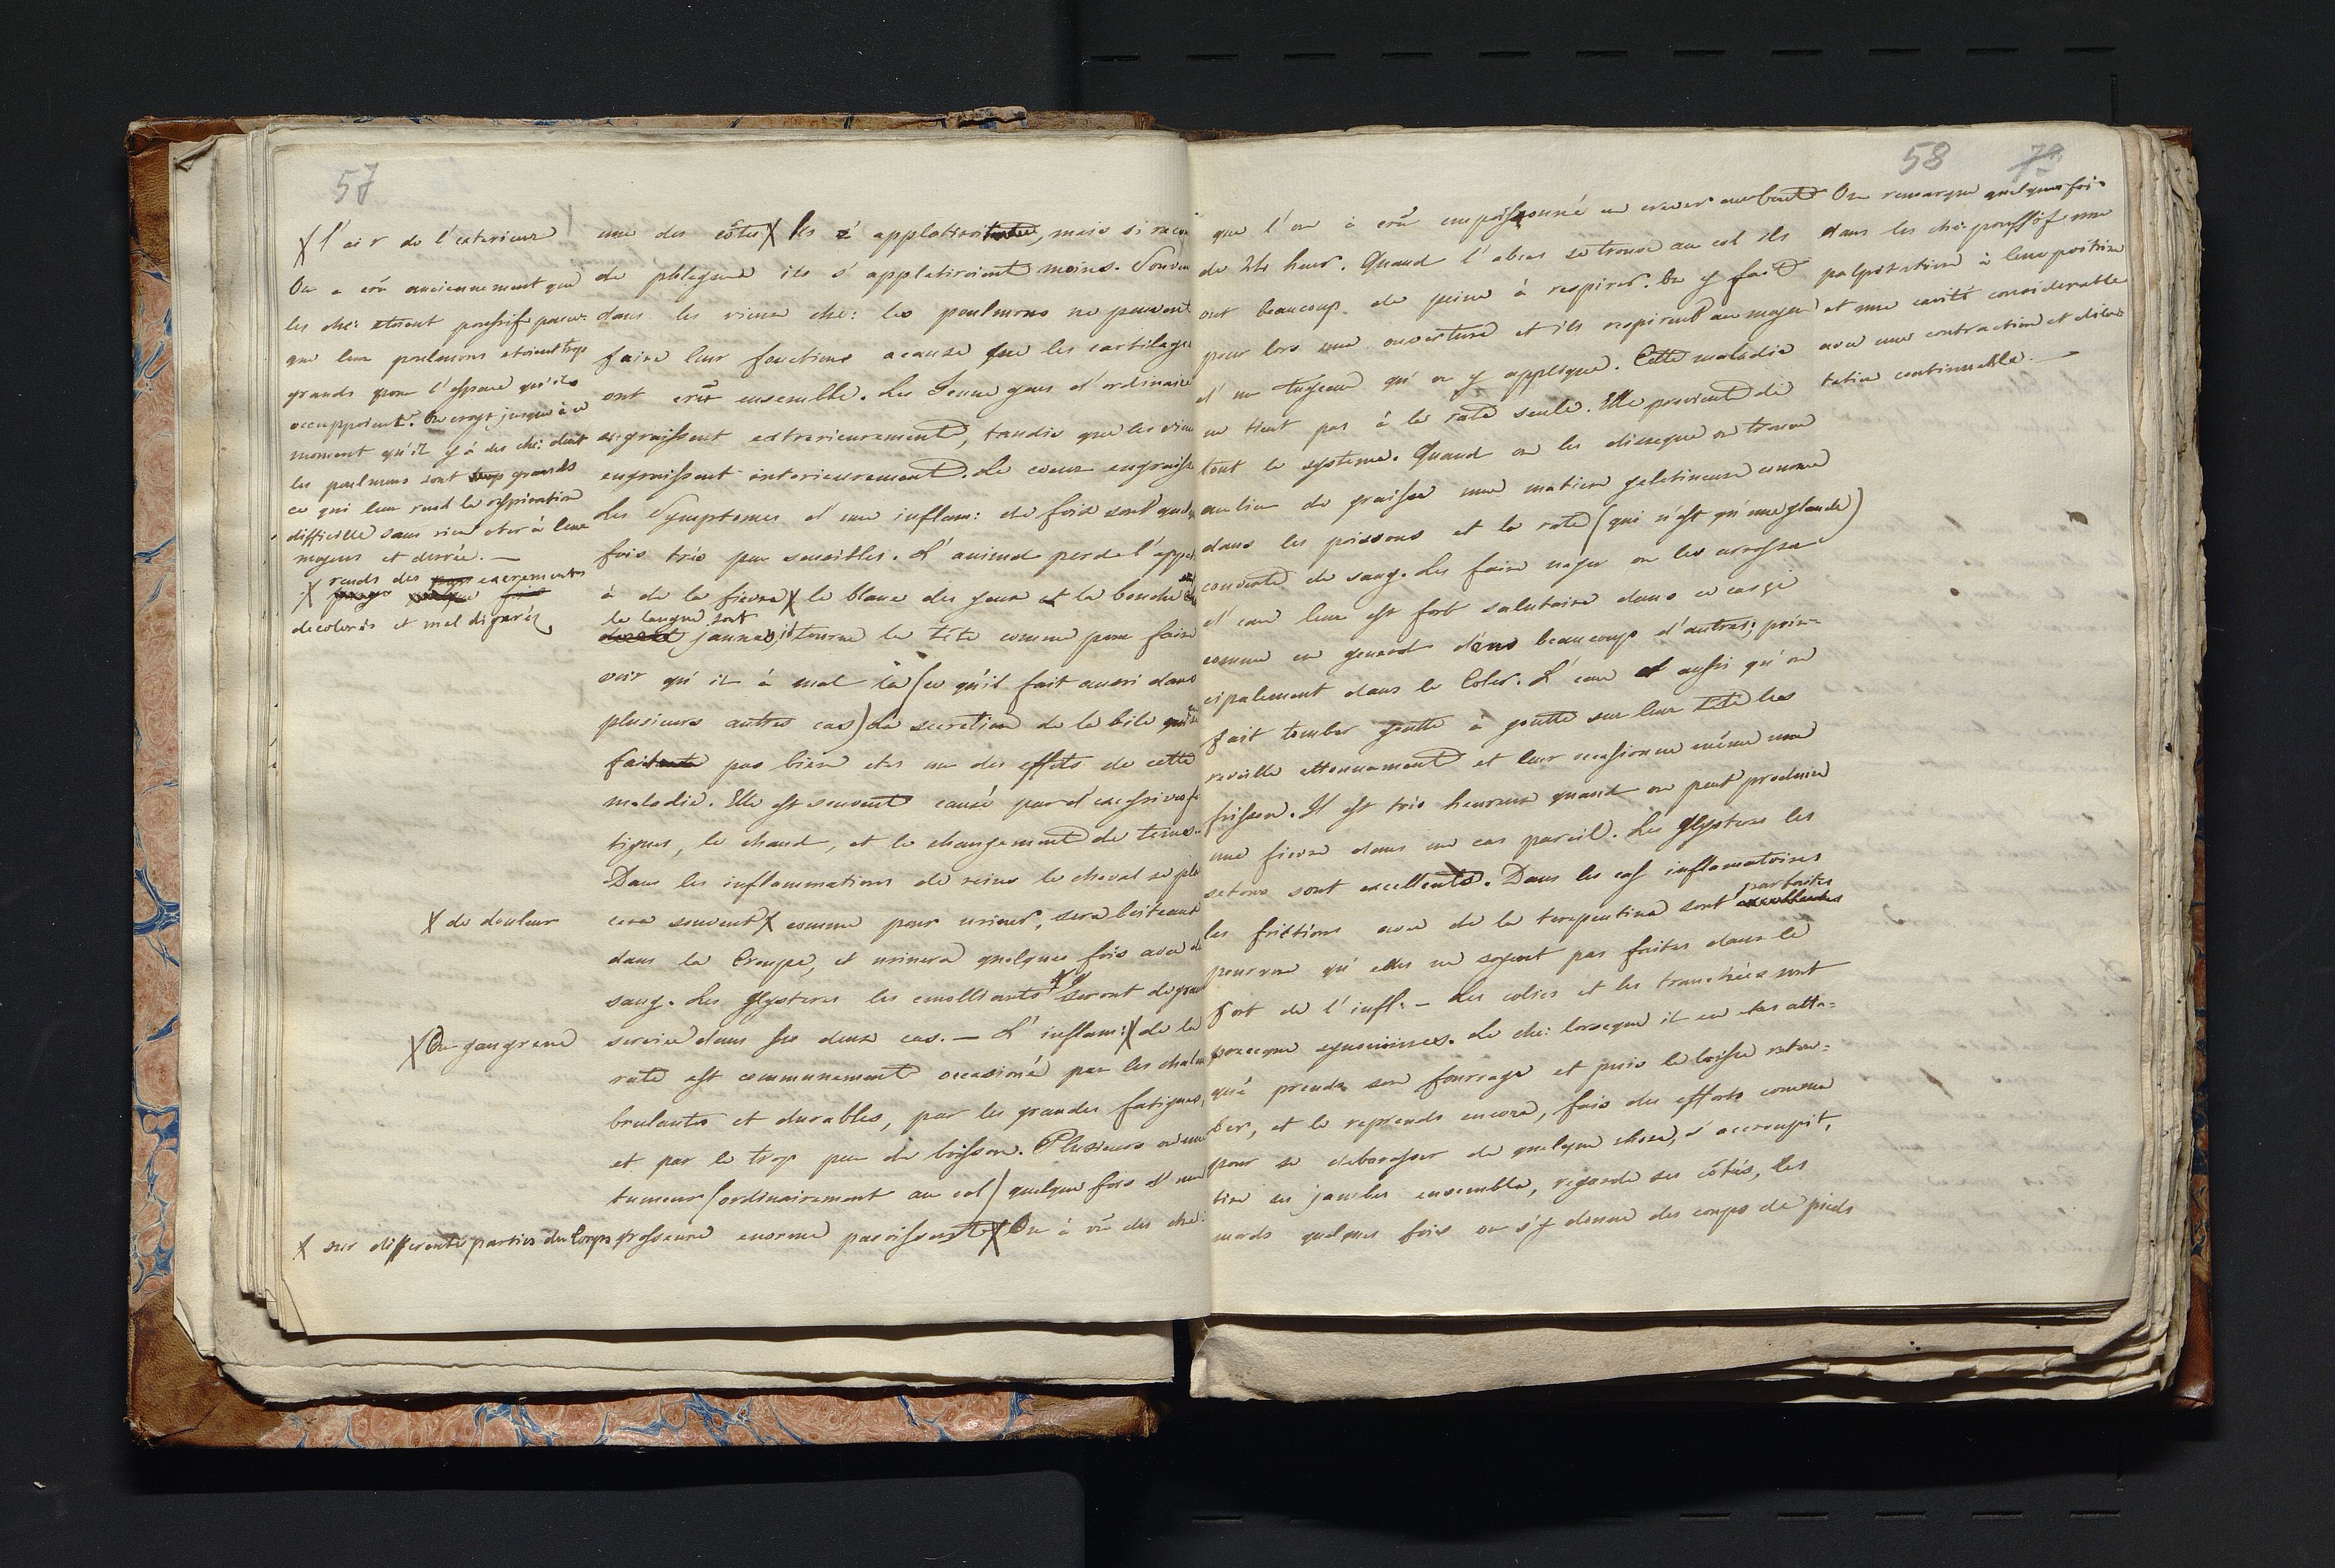 57
X l'air de l'exterieur
On a crû anciennement que
les che: etoient poussif parce-
que leur poulmons etoient trop
grands pour l'espace qu'ils
occuppoient. On croyt jusque à ce
moment qu'il y à des che: dont
les poulmons sont trop grands
ce qui leur rend la respiration
difficille sans rien oter à leur
moyens et durée. —
X rends des excrements
decolorés et mal digerés
X de douleur
X Ou gangrene
X sur differente parties du Corps
une des côtes X Ils s'applatiroi, mais si
de phlegme ils s'applatiroient moins. Souven
dans les vieux che: les poulmons ne peuvent
faire leur fonctions acause que les cartilages
ont crût ensemble. Les Jeune gens d'ordinaire
engraissent exterieurement, tandis que les vieu
engraissent interieurement. Le coeur engraisse
Les Symptomes d'une inflam: de foie sont quelq
fois très peu sensibles. L'animal perd l'appe
à de la fievre X le blanc des yeux et la bouche
la langue sont
jaunes, il tourne la tête comme pour faire
voir qu'il à mal là (ce qu'il fait aussi dans
plusieurs autres cas) La secretion de la bile
fait pas bien est un des effets de cette
maladie. Elle est souvent causé par d'excessives fa
tigues, le chaud, et le changement de tems.
Dans les inflammations de reins le cheval se pla
cera souvent X comme pour uriner, sera boiteux
dans la Croupe, et urinera quelques fois avec du
sang. Les glysteres les emolliants seront de grand
service dans les deux cas. — L'inflam: X de la
rate est communement occasioné par les chaleu
brulantes et durables, par les grandes fatigues,
et par le trop peu de boisson. Plusieurs ou une
tumeur (ordinairement au col) quelque fois d'une
grosseure enorme paroissent X On à vû des che:
58 79
que l'on à crû empoissonné en crever au bout
de 24 heur. Quand l'abces se trouve au col ils
ont beaucoup de peine à respirer. On y fait
pour lors une ouverture et ils respirent au moyen
d'un tuyeau qu'on y applique. Cette maladie
ne tient pas à la rate seule. Elle provient de
tout le systeme. Quand on les disseque on trouve
au lieu de graisse une matiere geletineuse comme
dans les poissons et la rate (qui n'est qu'une glande)
couverte de sang. Les faire nager ou les arroser
d'eau leur est fort salutaire dans ce cas ci
comme en general dans beaucoup d'autres; prin-
cipalement dans la Coler. L'eau et aussi qu'on
fait tomber goutte à goutte sur leur tête les
reveille ettonnament et leur occasionne même une
frisson. Il est très heureux quand on peut produire
une fievre dans un cas pareil. Les Glysteres les
setons sont excellents. Dans les cas inflamatoires
parfaites
les frictions avec de la terepentine sont
pourvu qu'elles ne soyent pas faites dans le
fort de l'infl: — Les colics et les tranchées sont
presque synonimes. Le che: lorseque il en est atta-
qué prends son fourrage et puis le laisse retom-
ber, et le reprends encore, fais des efforts comme
pour se debarasser de quelque chose, s'accroupit,
tire ses jambes ensemble, regarde ses côtés, les
mords quelques fois ou s'y donne des coups de pieds
On remarque quelques fois
dans les che: poussifs une
palpitation à leur poitrine
et une cavité considerable
avec une contraction et dila-
tation continuelle. —